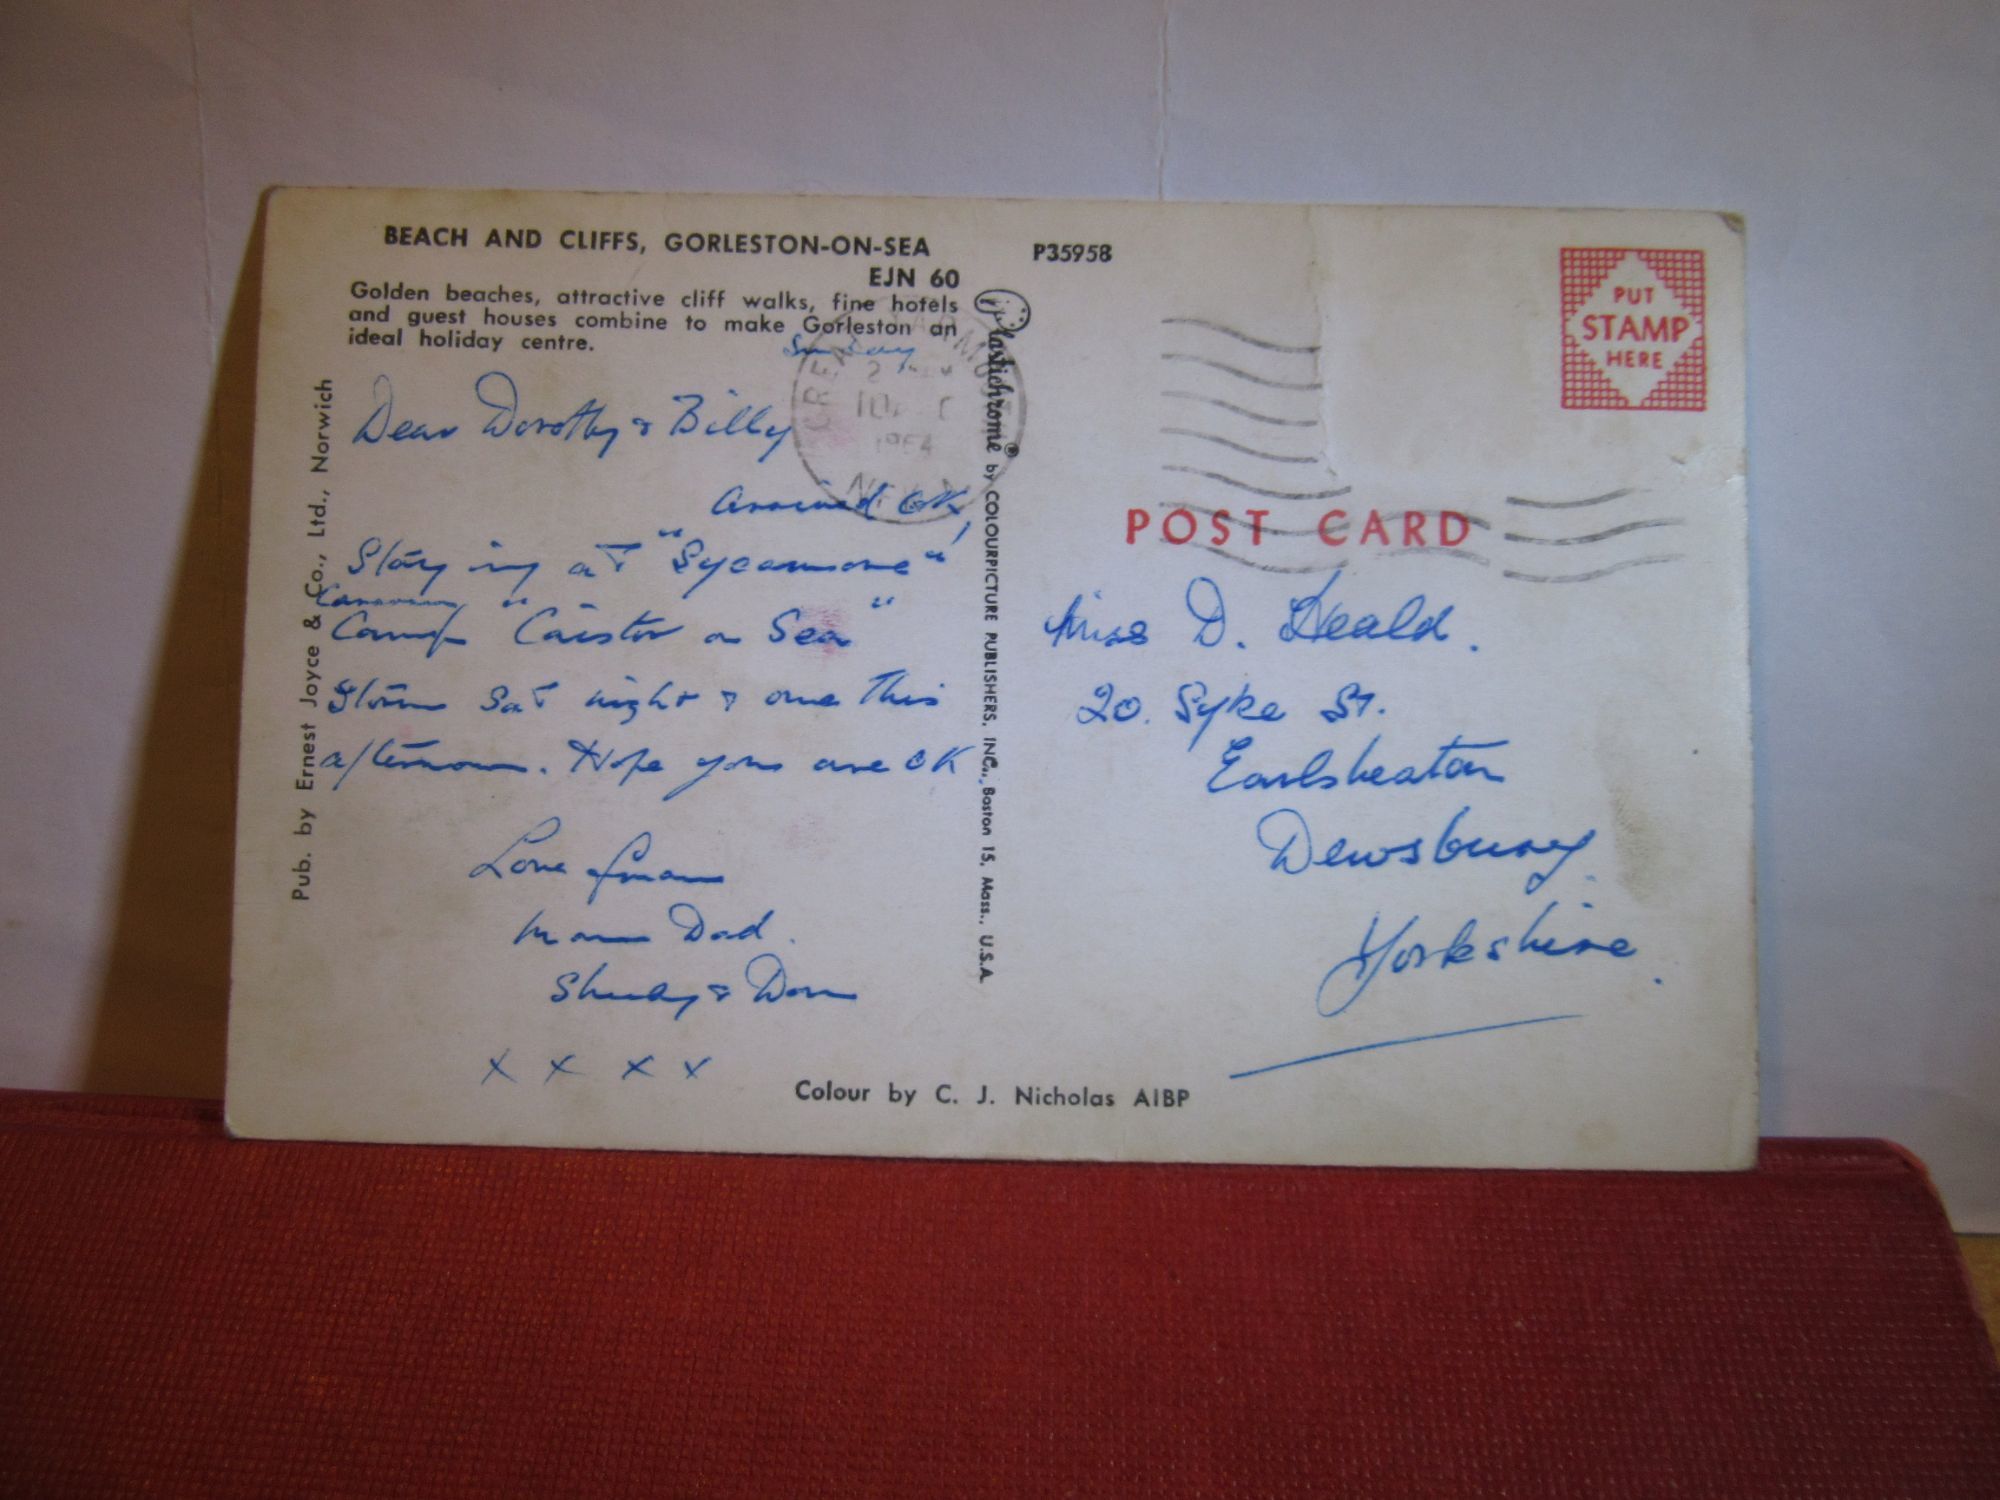 BEACH AND CLIFFS, GORLESTON-ON-SEA
EJN 60
P35958
Golden beaches, attractive cliff walks, fine hotels
and guest houses combine to make Gorleston an
ideal holiday centre.
Sunday
Dear Dorothy & Billy
Arrived OK,
Staying at "Sycamore"
Caravan
Camp "Caister on Sea"
Storm Sat night & one this
afternoon. Hope yous are OK
Love from
Mam Dad.
& Don
x x x x
Pub. by Ernest Joyce & Co., Ltd., Norwich
Plastichrome® by COLOURPICTURE PUBLISHERS, INC., Boston 15, Mass., U.S.A.
GREAT YARMOUTH
1964
PUT
STAMP
HERE
POST CARD
Miss D. Heald.
20. Syke St.
Earlsheaton
Dewsbury.
Yorkshire.
Colour by C. J. Nicholas AIBP